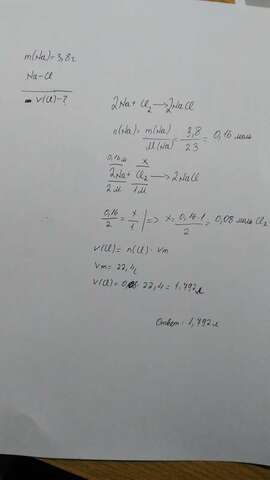 m(Na)=3,8г
Na-Cl
V(Cl)-?
2Na+Cl₂→2NaCl
n(Na)=m(Na)/M(Na)=3,8/23=0,16 моль
0,16м x
2Na+Cl₂→2NaCl
2м 1м
0,16/2=x/1 |=> x=0,16·1/2=0,08 моль Cl₂
V(Cl)=n(Cl)·Vm
Vm=22,4
V(Cl)=0,08·22,4=1,792л
Ответ: 1,792л